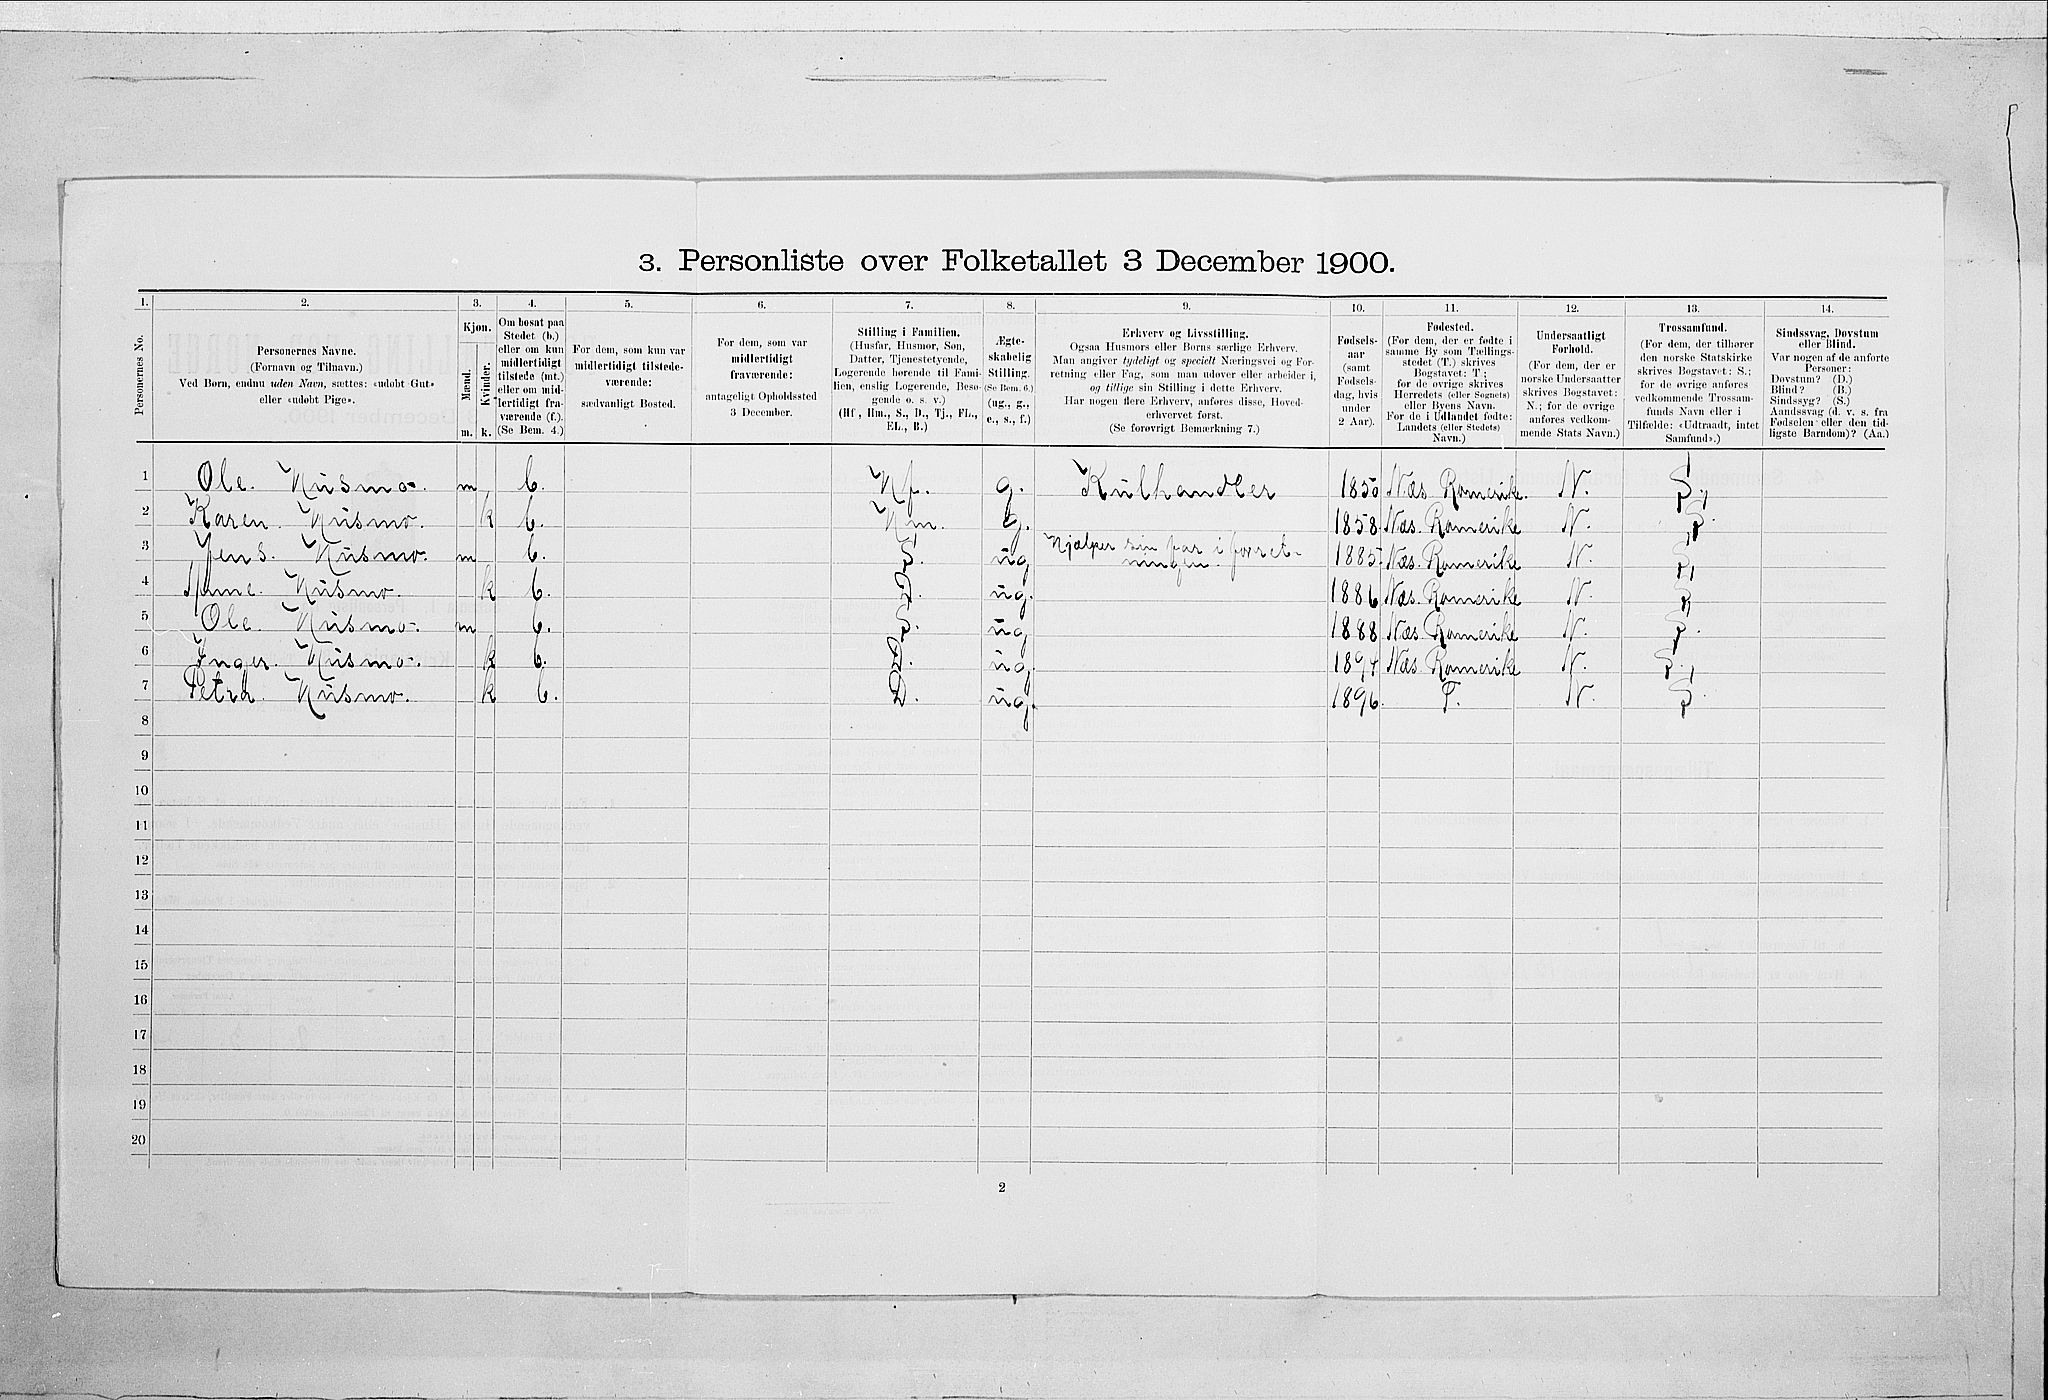 3. Personliste over Folketallet 3 December 1900.
1. 2. 3. 4. 5. 6. 7. 8. 9. 10. 11. 12. 13. 14.
Personernes No.
Personernes Navne.
(Fornavn og Tilnavn.)
Ved Børn, endnu uden Navn, sættes: «udøbt Gut»
eller «udøbt Pige».
Kjøn.
Mænd.
Kvinder.
m. k.
Om bosat paa
Stedet (b.)
eller om kun
midlertidigt
tilstede (mt.)
eller om mid-
lertidigt fra-
værende (f.).
(Se Bem. 4.)
For dem, som kun var
midlertidigt tilstede-
værende:
sædvanligt Bosted.
For dem, som var
midlertidigt
fraværende:
antageligt Opholdssted
3 December.
Stilling i Familien.
(Husfar, Husmor, Søn,
Datter, Tjenestetyende,
Logerende hørende til Fami-
lien, enslig Logerende, Besø-
gende o. s. v.)
(Hf., Hm., S., D., Tj., FL.,
EL., B.)
Ægte-
skabelig
Stilling.
(Se Bem. 6.)
(ug., g.,
e., s., f.)
Erhverv og Livsstilling.
Ogsaa Husmors eller Børns særlige Erhverv.
Man angiver tydeligt og specielt Næringsvei og For-
retning eller Fag, som man udøver eller arbeider i,
og tillige sin Stilling i dette Erhverv.
Har nogen flere Erhverv, anføres disse, Hoved-
erhvervet først.
(Se forøvrigt Bemærkning 7.)
Fødsels-
aar
(samt
Fødsels-
dag, hvis
under
2 Aar).
Fødested.
(For dem, der er fødte i
samme By som Tællings-
stedet (T.) skrives
Bogstavet: T;
for de øvrige skrives
Herredets (eller Sognets)
eller Byens Navn.
For de i Udlandet fødte:
Landets (eller Stedets)
Navn.)
Undersaatligt
Forhold.
(For dem, der er
norske Undersaatter
skrives Bogstavet:
N.; for de øvrige
anføres vedkom-
mende Stats Navn.)
Trossamfund.
(For dem, der tilhører
den norske Statskirke
skrives Bogstavet: S.;
for de øvrige anføres
vedkommende Trossam-
funds Navn eller i
Tilfælde: «Udtraadt, intet
Samfund».)
Sindssvag, Døvstum
eller Blind.
Var nogen af de anførte
Personer:
Døvstum? (D.)
Blind? (B.)
Sindssyg? (S.)
Aandssvag (d. v. s. fra
Fødselen eller den tid-
ligste Barndom)? (Aa.)
1 Ole. Husmo. m b. Hf. g. Kulhandler 1850 Næs. Romerike. N. S.
2 Karen. Husmo. k b. Hm. g. 1858. Næs. Romerike N. S.
3 Jens. Husmo. m b. S. ug Hjælper sin far i forret-
ningen. 1885 Næs. Romerike N. S.
4 Husmo. k b. D. ug. 1886 Næs. Romerike N. S.
5 Ole. Husmo. m b. S. ug 1888 Næs. Romerike N. S.
6 Inger. Husmo. k b. D. ug 1894 Næs. Romerike N. S.
7 Petra. Husmo. k b. D. ug. 1896. T. N. S.
8
9
10
11
12
13
14
15
16
17
18
19
20
2